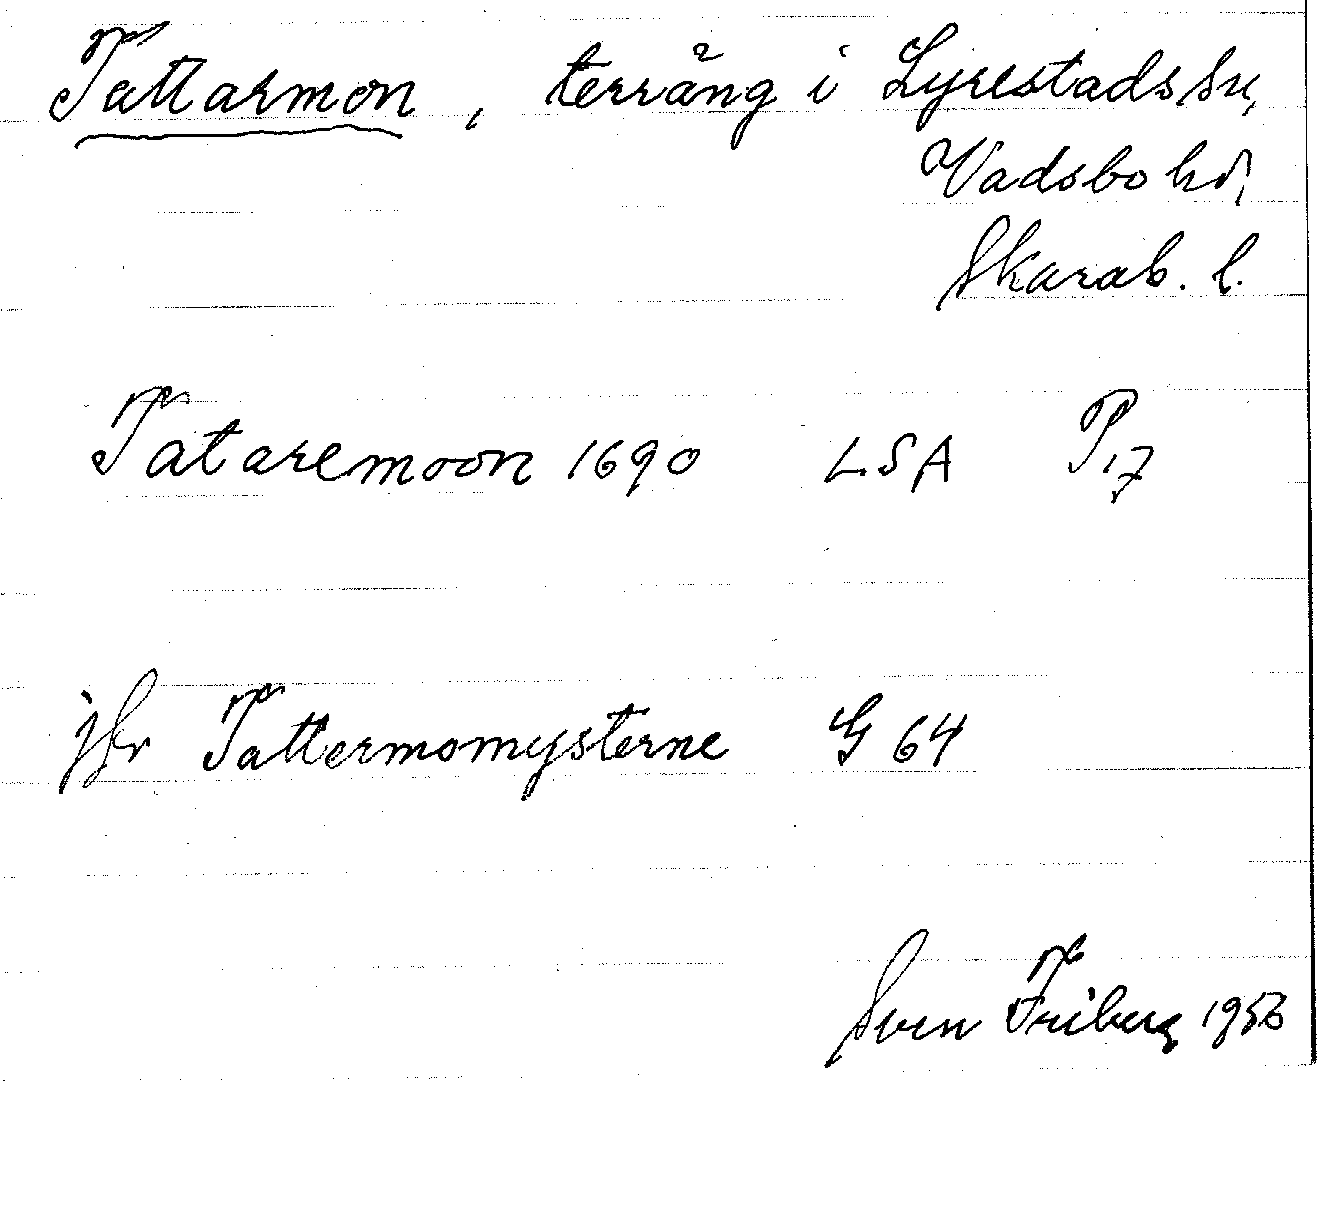 Tattarmon, terräng i Lyrestads sn,
Vadsbo hd,
Skarab. l.
Tataremoon 1690 LSA P17
jfr Tattermomysterne G 64
Sven Friberg 1956